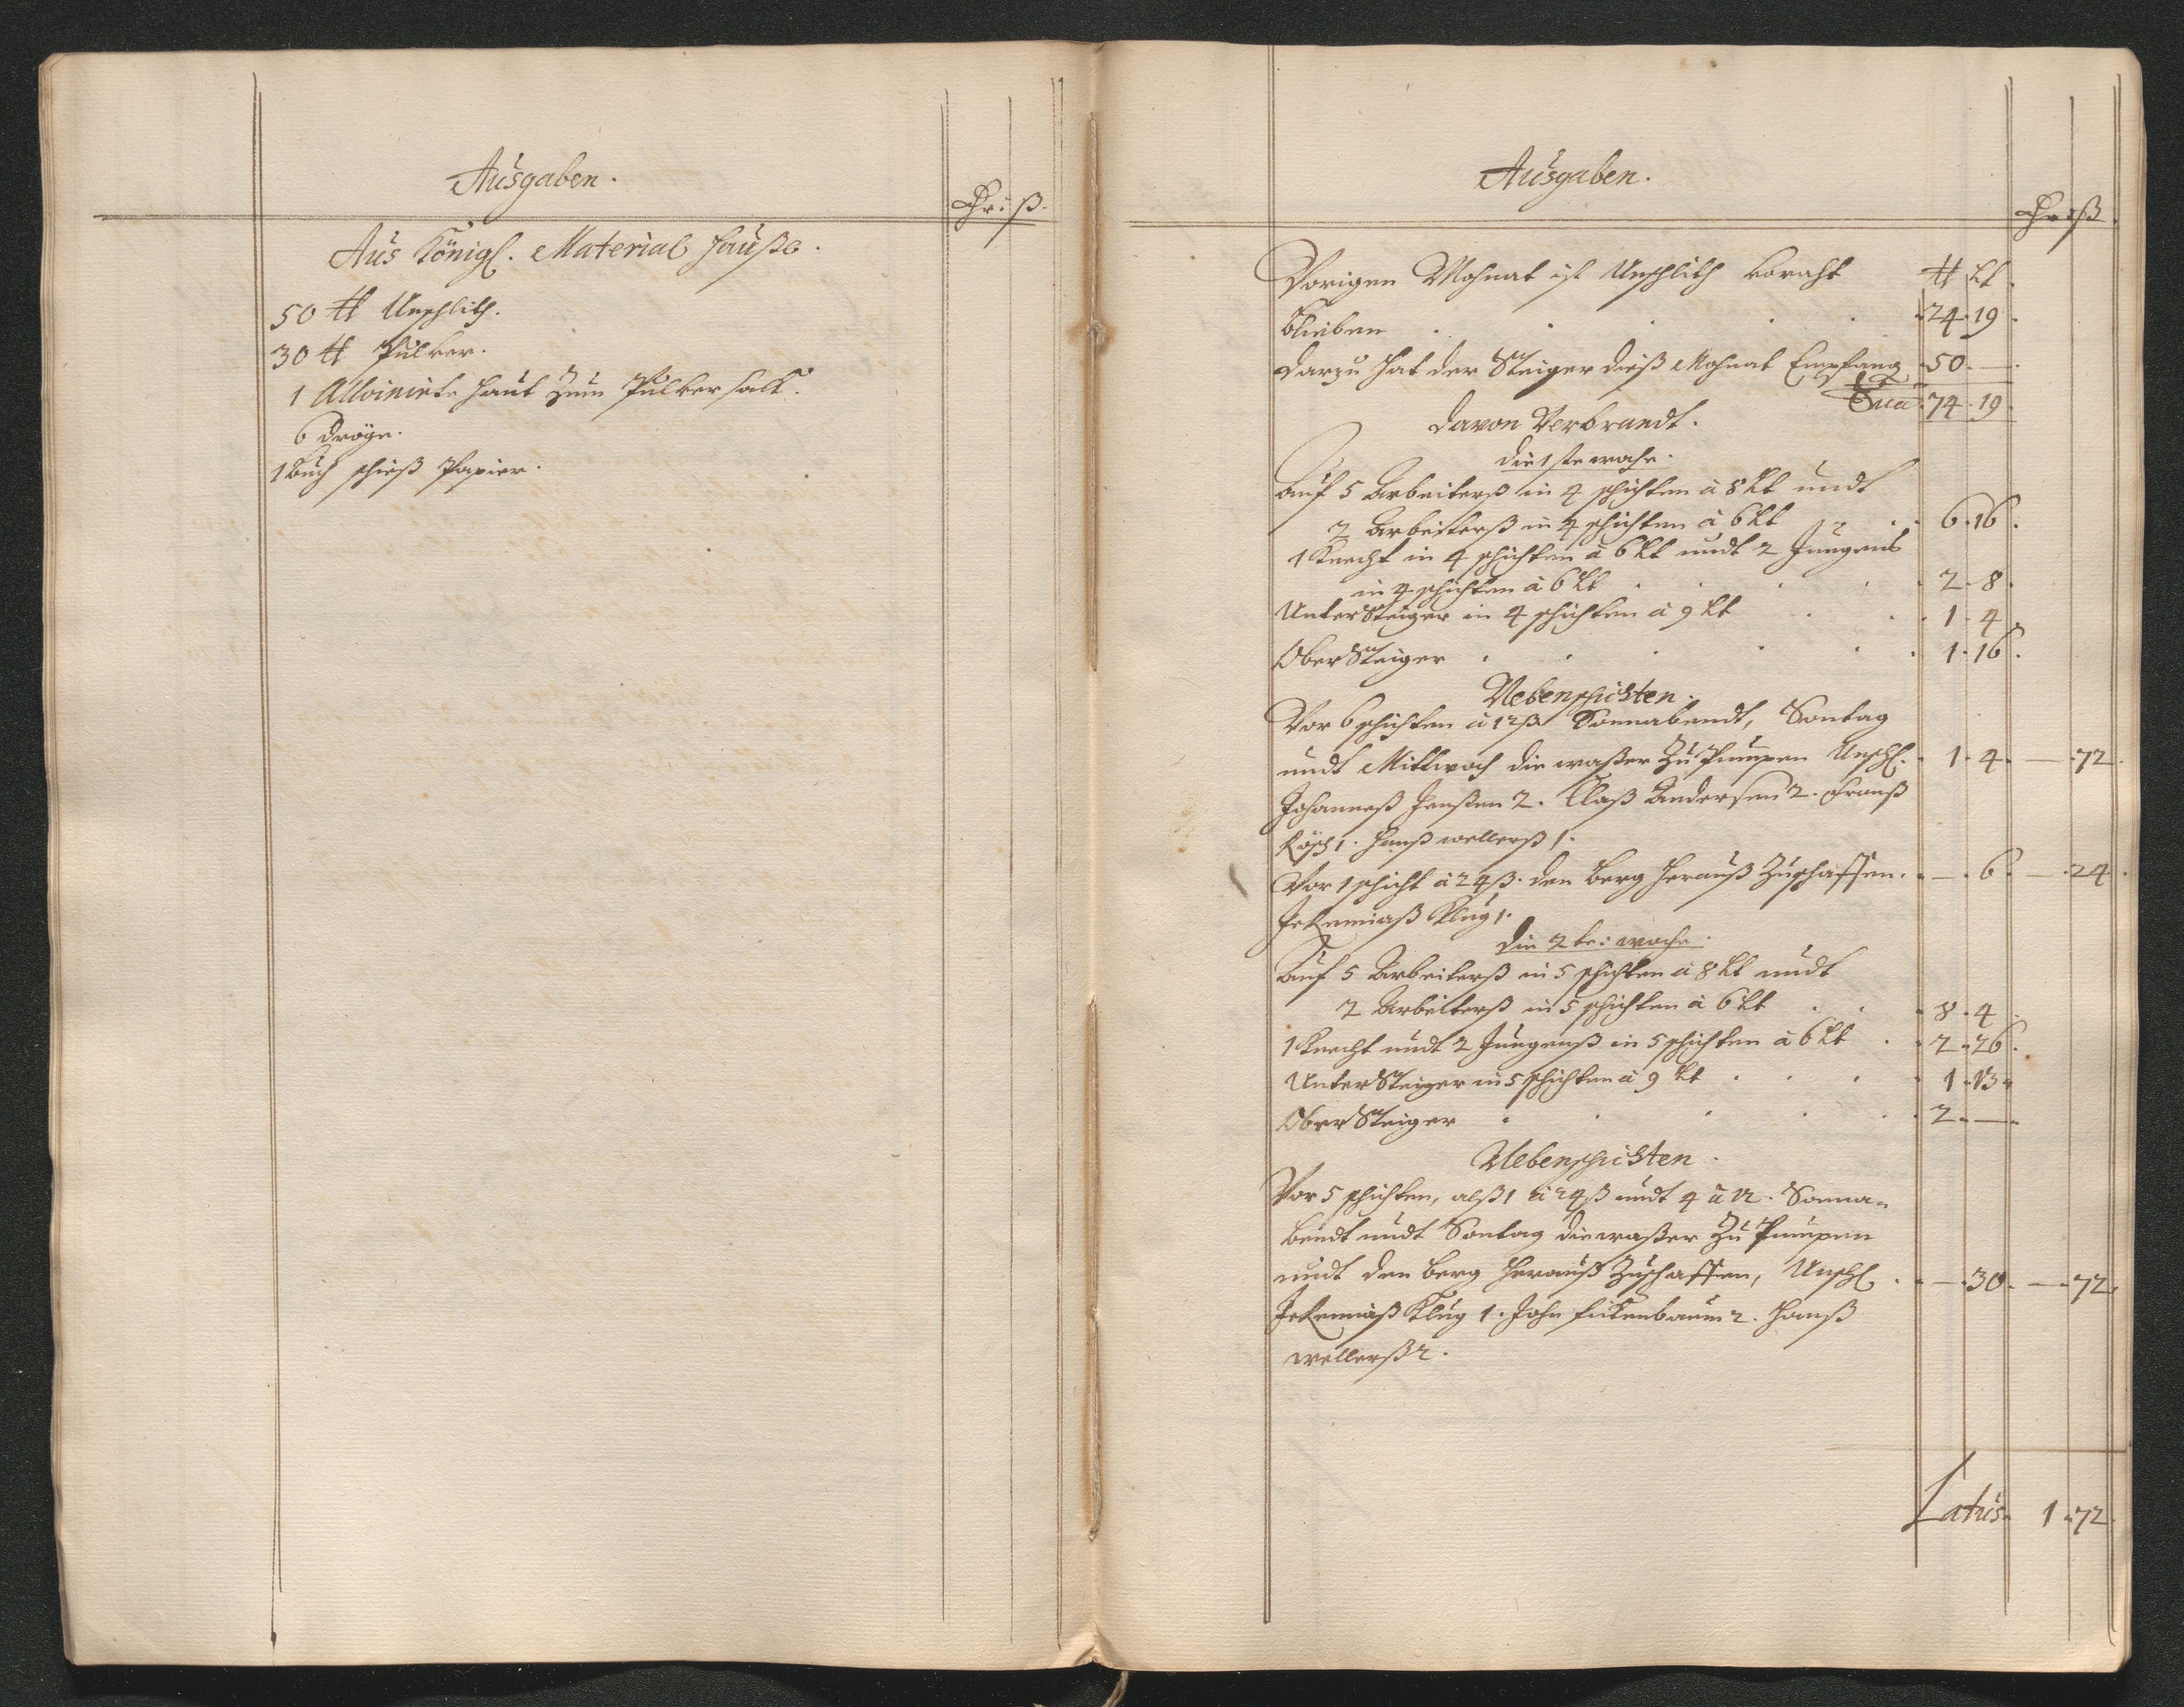 Ausgaben.
Thr: ß.
Aus Königl. Material Hauße.
50 ℔ Unschlith.
30 ℔ Pulver.
1 Alloinirte Haut zum Pulver sack.
6 Dröge.
1 Buch schieß Papier.
Ausgaben.
Thr ß
Vorigen Mohnat ist Unschlith voraht ℔ Lt.
blieben . . . . . 24. 19.
darzu hat der Steiger dieß Mohnat Empfang 50. —.
Sua 74. 19.
davon Verbrandt.
die 1ste woche.
Auf 5 Arbeiterß in 4 schichten à 8 Lt undt
2 Arbeiterß in 4 schichten à 6 Lt . . 6. 16.
1 Knecht in 4 schichten à 6 Lt undt 2 Jungens
in 4 schichten à 6 Lt . . . . 2. 8.
UnterSteiger in 4 schichten à 9 Lt . . 1. 4.
OberSteiger . . . . . 1. 16.
Nebenschichten.
Vor 6 schichten à 12 ß Sonnabendt, Sontag
undt Mittwoch die waßer Zu Pumpen Unschl. 1. 4. — 72.
Johanneß Hanßen 2. Claß Andersen 2. Franß
Rösch 1. Hanß wellerß 1.
Vor 1 schicht à 24 ß. den Berg heranß Zuschaffen. —. 6. — 24.
Jeremiaß Klug 1.
die 2te: woche.
Auf 5 Arbeiterß in 5 schichten à 8 Lt undt
2 Arbeiterß in 5 schichten à 6 Lt . . 8. 4.
1 Knecht undt 2 Jungenß in 5 schichten à 6 Lt . 2. 26.
UnterSteiger in 5 schichten à 9 Lt . . . . 1. 13.
OberSteiger . . . . . 2. —.
Nebenschichten.
Vor 5 schichten, alß 1 à 24 ß undt 4 à 12. Sonna-
bendt undt Sontag die waßer Zu Pumpen
undt den Berg herauß Zuschaffen, Unschl . —. 30. — 72.
Jeremiaß Klug 1. John Fickenbaum 2. Hanß
wellerß 2.
Latus. 1. 72.